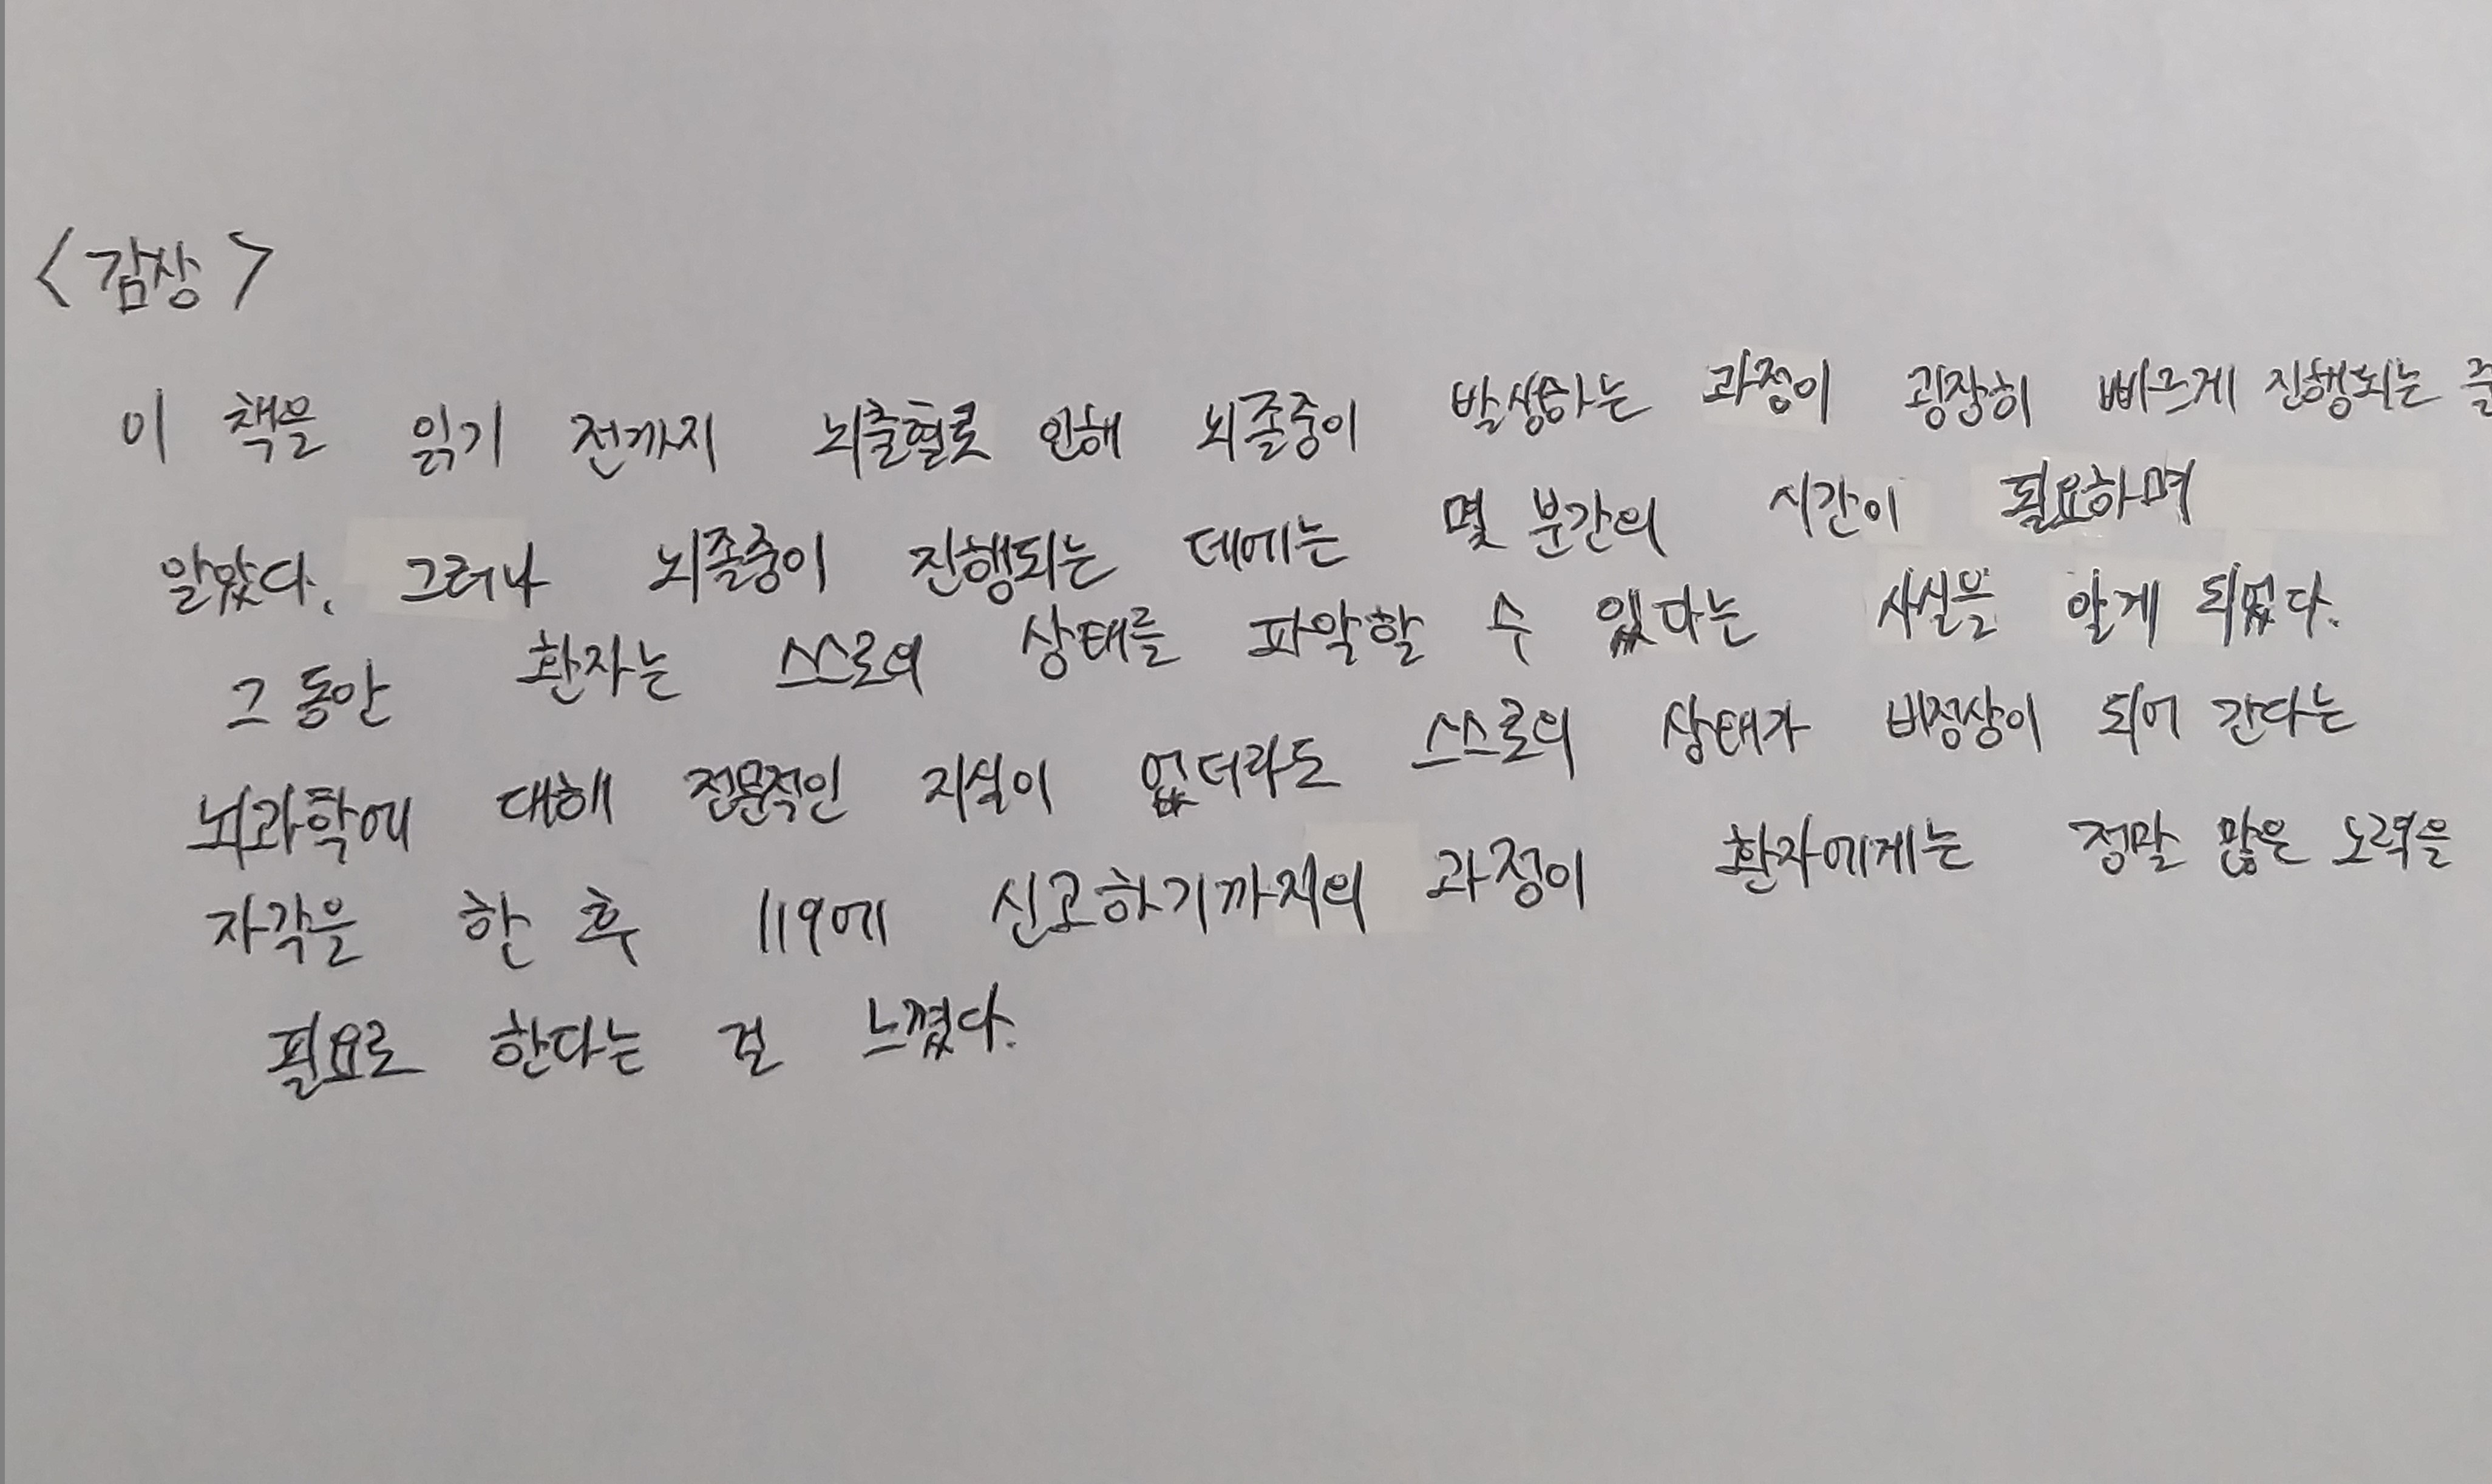 <감상>
이 책을 읽기 전까지 뇌출혈로 인해 뇌졸중이 발생하는 과정이 굉장히 빠르게 진행되는 줄
알았다. 그러나 뇌졸중이 진행되는 데에는 몇 분간의 시간이 필요하며
그 동안 환자는 스스로의 상태를 파악할 수 있다는 사실을 알게 되었다.
뇌과학에 대해 전문적인 지식이 없더라도 스스로의 상태가 비정상이 되어 간다는
자각을 한 후 119에 신고하기까지의 과정이 환자에게는 정말 많은 노력을
필요로 한다는 걸 느꼈다.